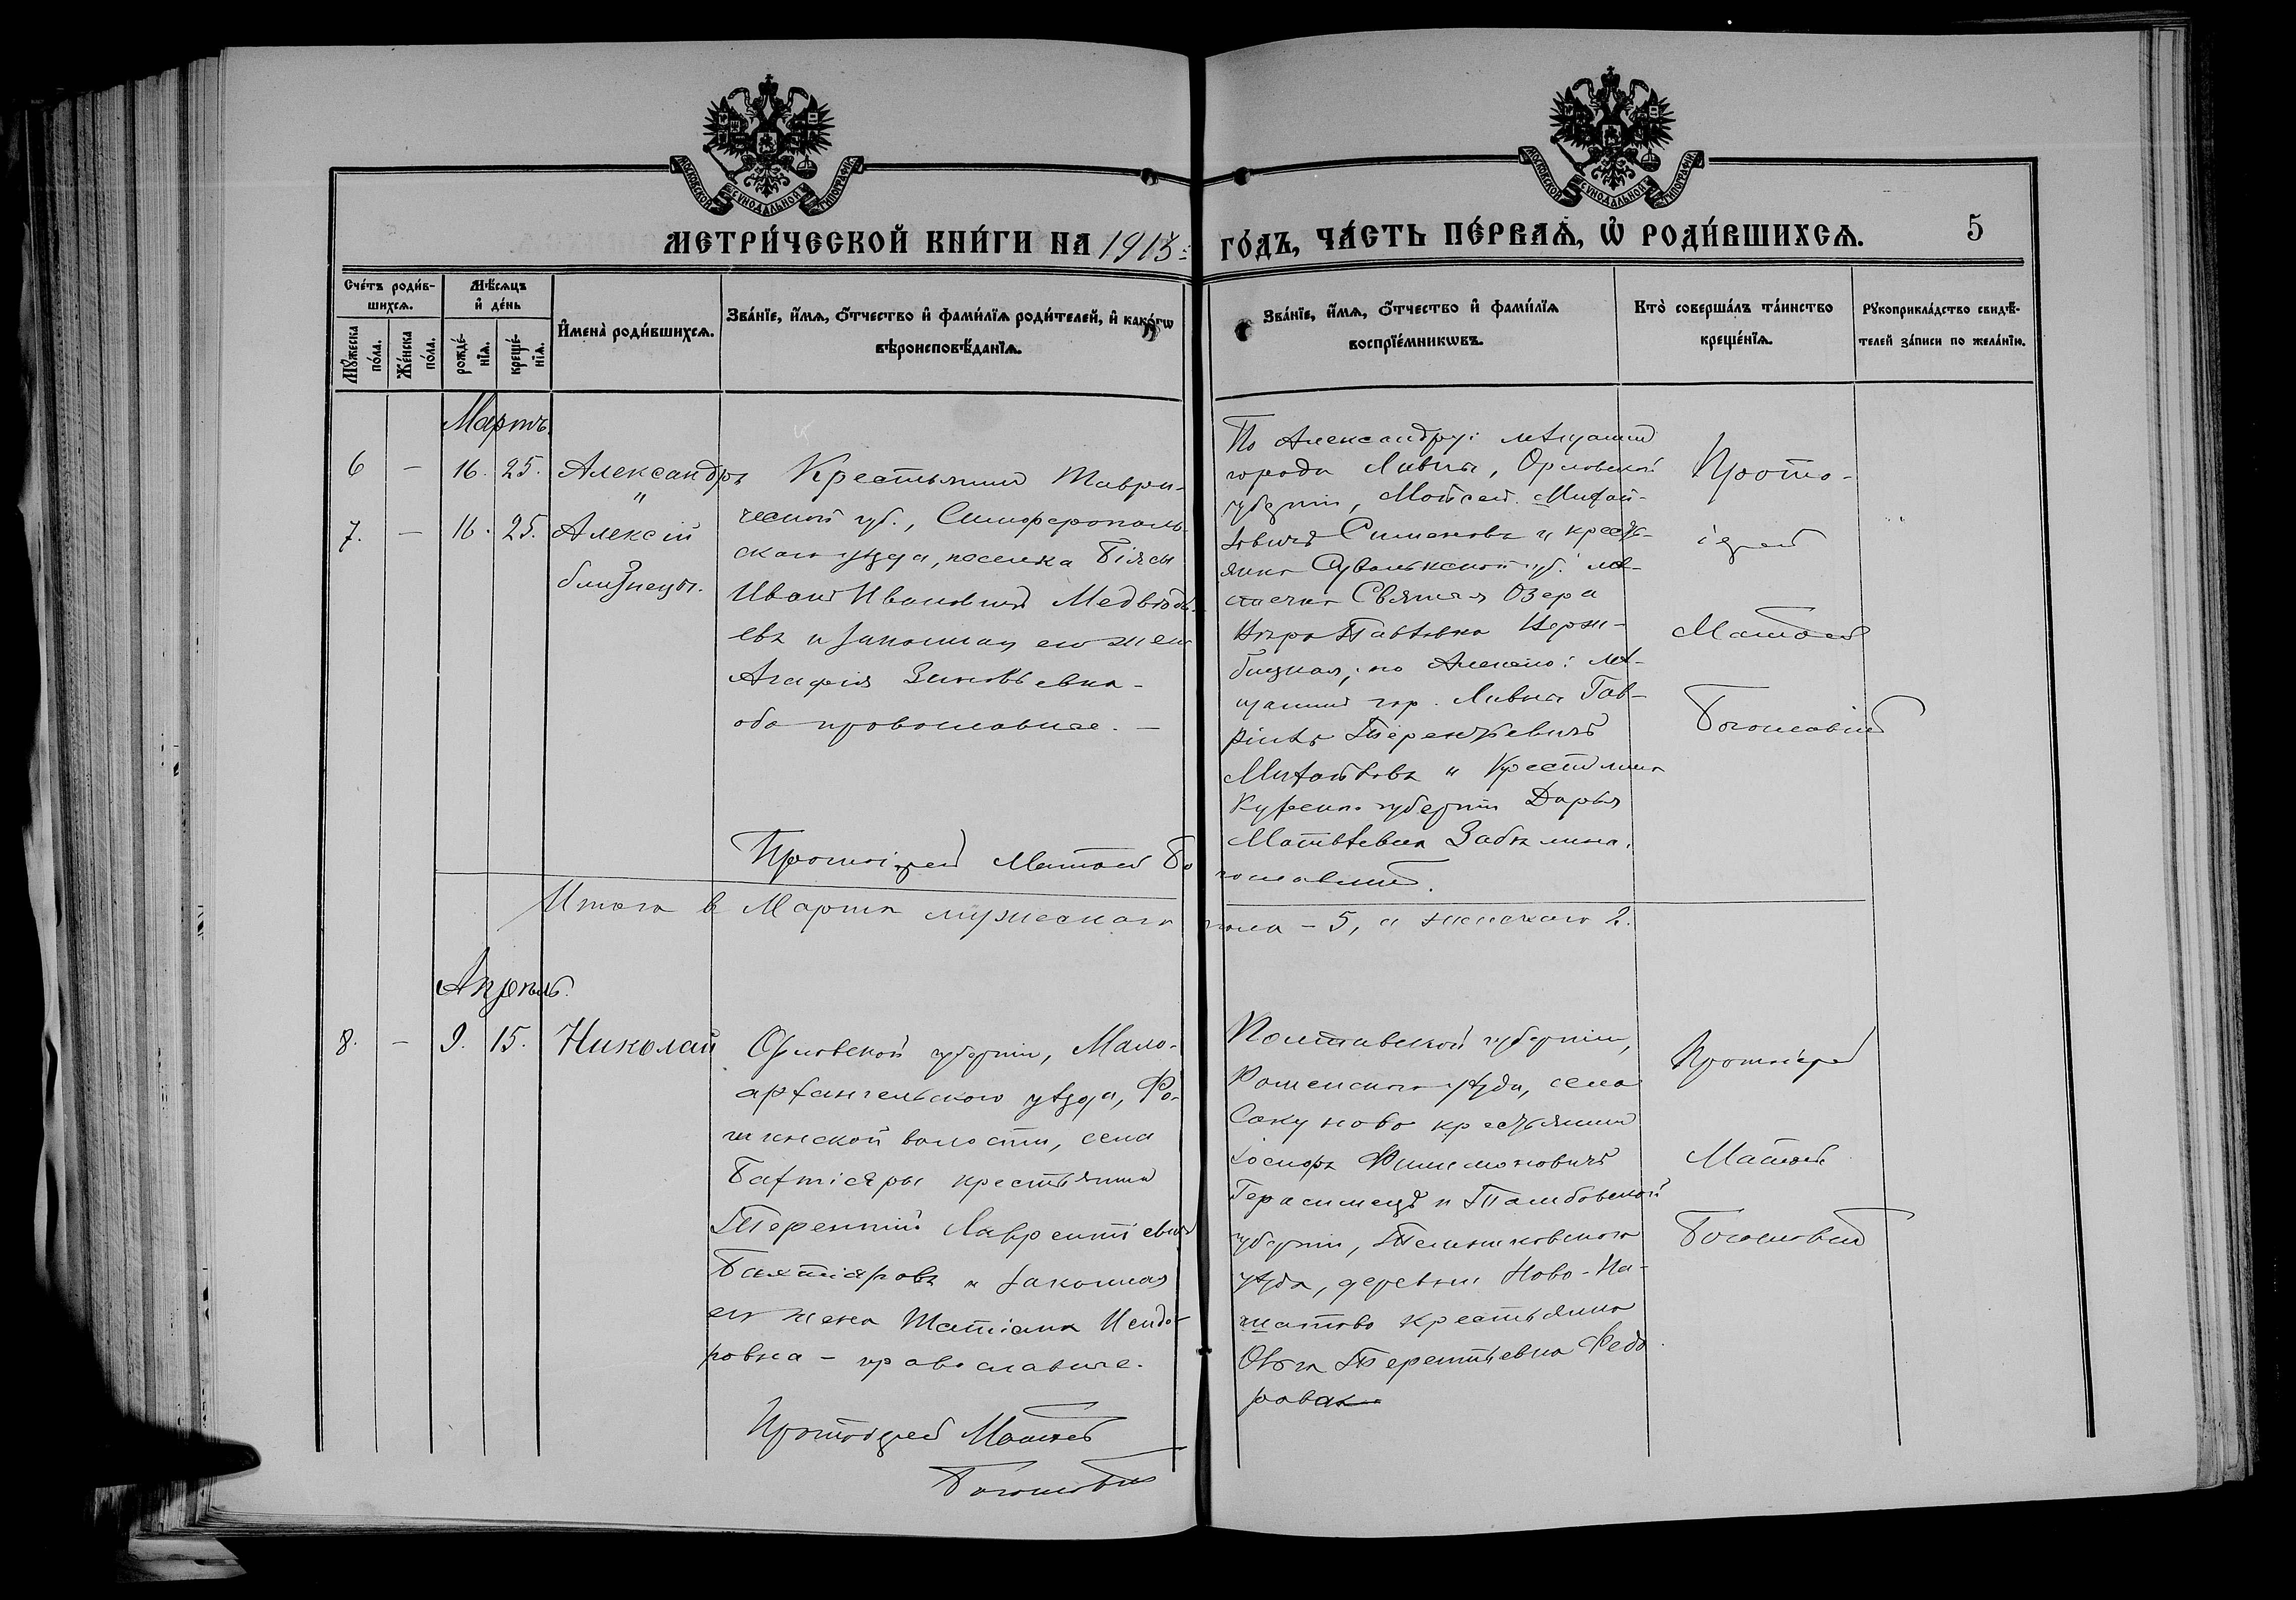 МОСКОВСКОЙ СѴНОДАЛЬНОЙ ТИПОГРАФІИ
МОСКОВСКОЙ СѴНОДАЛЬНОЙ ТИПОГРАФІИ
МЕТРИ́ЧЕСКОЙ КНИ́ГИ НА 1913 ГО́ДЪ, ЧА́СТЬ ПЕ́РВАѦ, Ѡ РОДИ́ВШИХСѦ.
5
Сче́тъ роди́в-
шихсѧ.
Мꙋ́жеска по́ла.
Же́нска по́ла.
Мѣ́сѧцъ
и҆ де́нь
рожде́-
нїѧ.
креще́-
нїѧ.
И҆мена̀ роди́вшихсѧ.
Зва́нїе, и҆́мѧ, ѻ҆́тчество и҆ фами́лїѧ роди́телей, и҆ како́гѡ
вѣроисповѣ́данїѧ.
Зва́нїе, и҆́мѧ, ѻ҆́тчество и҆ фами́лїѧ
воспрїе́мникѡвъ.
Кто̀ соверша́лъ та́инство
креще́нїѧ.
Рꙋкоприкла́дство свидѣ́-
телей за́писи по жела́нїю.
Мартъ.
6 — 16. 25. Александръ
"
7. — 16. 25. Алексій
близнецы.
Крестьянинъ Таври-
ческой губ., Симферополь-
скаго уѣзда, поселка Біясы
Иванъ Ивановичъ Медвѣдь-
евъ и законная его жена
Агафія Зиновьевна -
оба православные. —
По Александру: мѣщанинъ
города Ливны, Орловской
губерніи, Моисей Михай-
ловичъ Симоновъ и кресть-
янка Сувалкской губ. мѣ-
стечка Святыя Озера
Павловна
по Алексію: мѣ-
щанинъ гор. Ливны Гав-
ріилъ Терентьевичъ
Михайловъ и Крестьянка
Курской губерніи Дарья
Матвѣевна
Прото-
іерей
Матвей
Богословскій
Протоіерей Матвей Богословскій.
Итого в Мартѣ мужескаго пола - 5, а женскаго 2.
Апрѣль.
8. — 9. 15. Николай
Орловской губерніи, Мало-
архангельскаго уѣзда,
волости, села
Бахтіяры крестьянинъ
Терентій Лаврентіевичъ
Бахтіяровъ и законная
его жена Татіана Исидо-
ровна - православные.
Полтавской губерніи,
Роменскаго уѣзда, села
крестьянинъ
Іосифъ Филимоновичъ
Герасимецъ и Тамбовской
губерніи, Темниковскаго
уѣзда, деревни Ново-
крестьянка
Ольга Терентьевна Федо
рова
Протоіерей
Матвей
Богословскій
Протоіерей Матвей
Богословскій